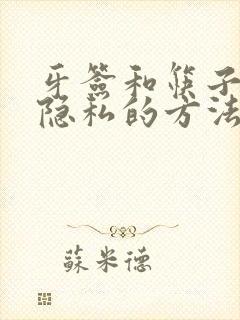 牙签和筷子
隐私的方法
蘇米德